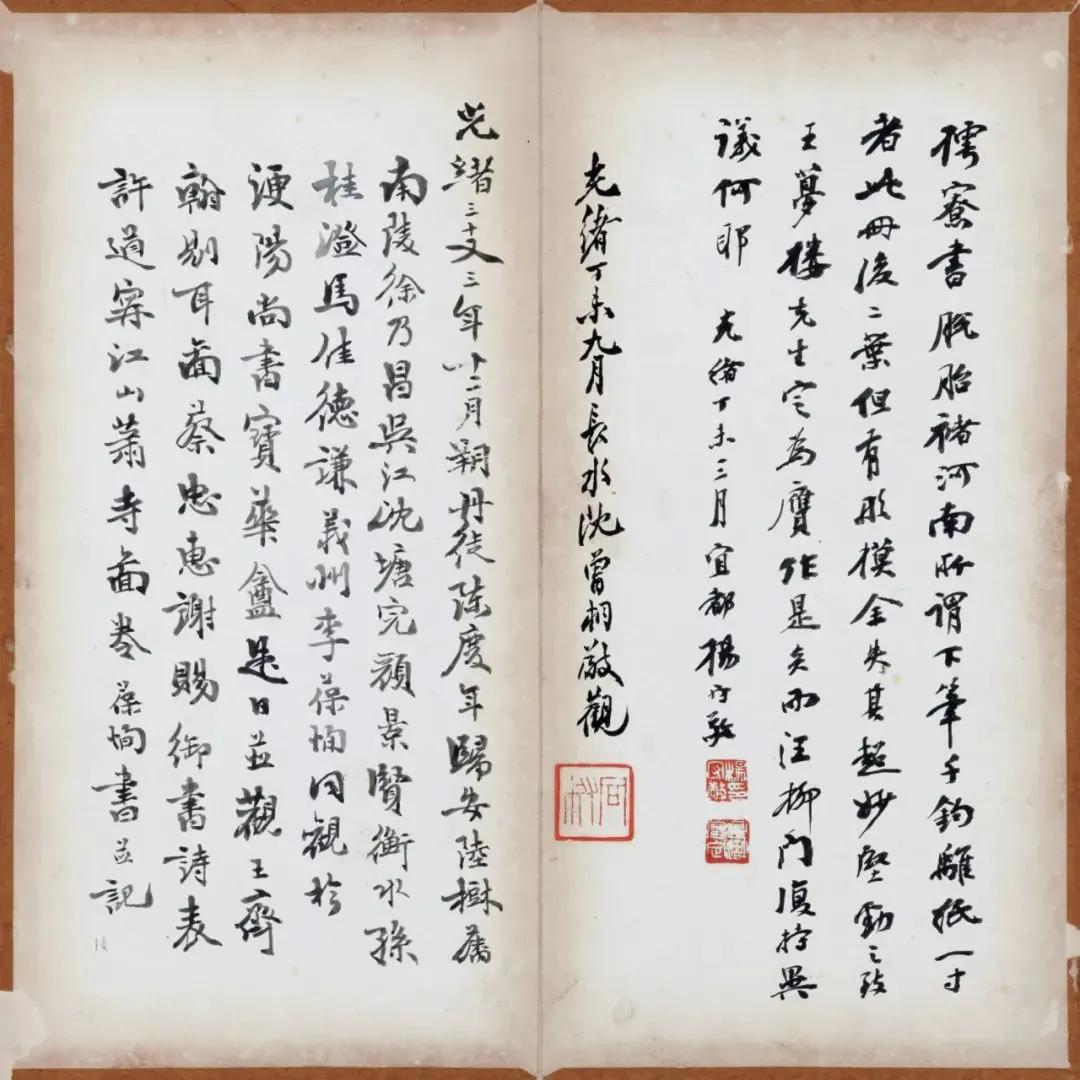 樗寮書脫胎褚河南所謂下筆千鈞離紙一寸
者此冊後二葉但有形模全失其超妙堅勁之致
王夢樓先生定為贗作是矣而汪柳門復持異
議何耶 光緒丁未三月宜都楊守敬
楊印守敬
光緒丁未九月長水沈曾桐敬觀
同叔
光緒三十又三年十二月朔丹徒陳慶年歸安陸樹藩
南陵徐乃昌吳江沈塘完顏景賢衡水孫
桂澂馬佳德謙義州李葆恂同觀於
浭陽尚書寶華盦是日並觀王齊
翰剔耳圖蔡忠惠謝賜御書詩表
許道寧江山蕭寺圖卷葆恂書並記